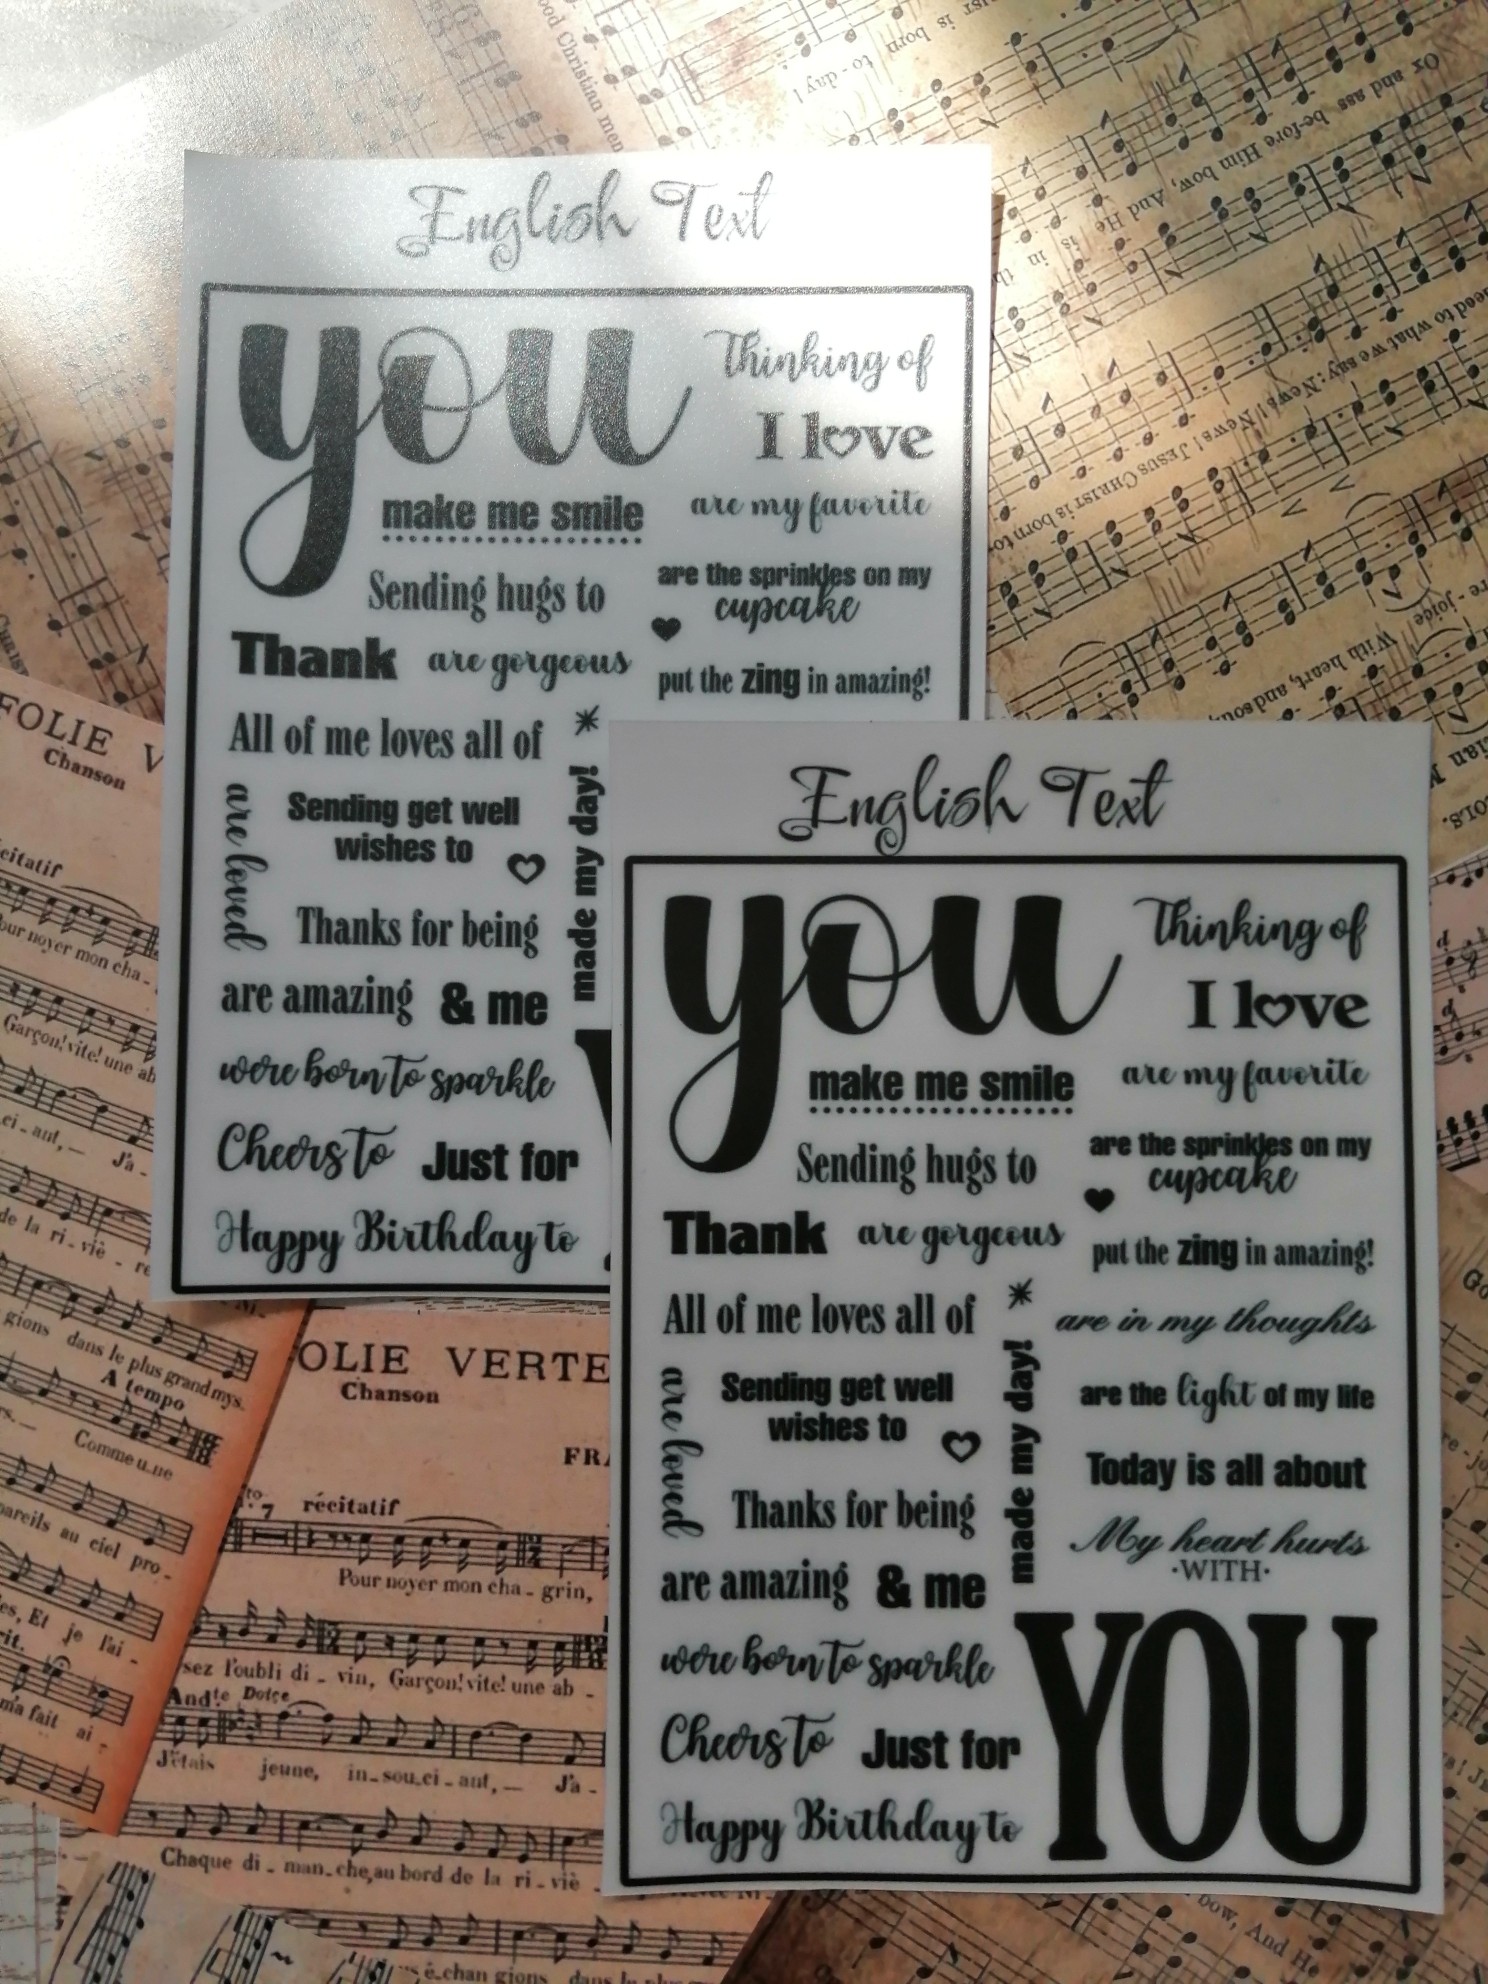 English Text
you
Thinking of
I love
make me smile
are my favorite
Sending hugs to
are the sprinkles on my
cupcake
Thank
are gorgeous
put the zing in amazing!
All of me loves all of
are loved
Sending get well
wishes to
made my day!
Thanks for being
are amazing
& me
were born to sparkle
Cheers to
Just for
Happy Birthday to
English Text
you
Thinking of
I love
make me smile
are my favorite
Sending hugs to
are the sprinkles on my
cupcake
Thank
are gorgeous
put the zing in amazing!
All of me loves all of
are in my thoughts
are loved
Sending get well
wishes to
made my day!
are the light of my life
Thanks for being
Today is all about
are amazing
& me
My heart hurts
·WITH·
were born to sparkle
Cheers to
Just for
Happy Birthday to
YOU
good Christian men
is born
to-day!
Ox and ass
be-fore Him bow, And He
is in th
need to what we say: News! News! Jesus Christ is born to-
re-joice
With heart, and soul,
FOLIE V
Chanson
récitatif
our noyer mon cha-
Garçon! vite! une ab
ci-ant,— J'a-
de la ri-viè-re
gions dans le plus grand mys.
A tempo
Comme u-ne
pareils au ciel pro-
es, Et je l'ai-
m'a fait ai-
OLIE VERTE
Chanson
FRA
7 récitatif
Pour noyer mon cha-grin,
sez l'oubli di-vin, Garçon! vite! une ab-
Andte Dolce
J'étais jeune, in-sou.ci-ant,— J'a-
Chaque di-man-che,au bord de la ri-viè
é-chan gions dans le plus
bow, And He